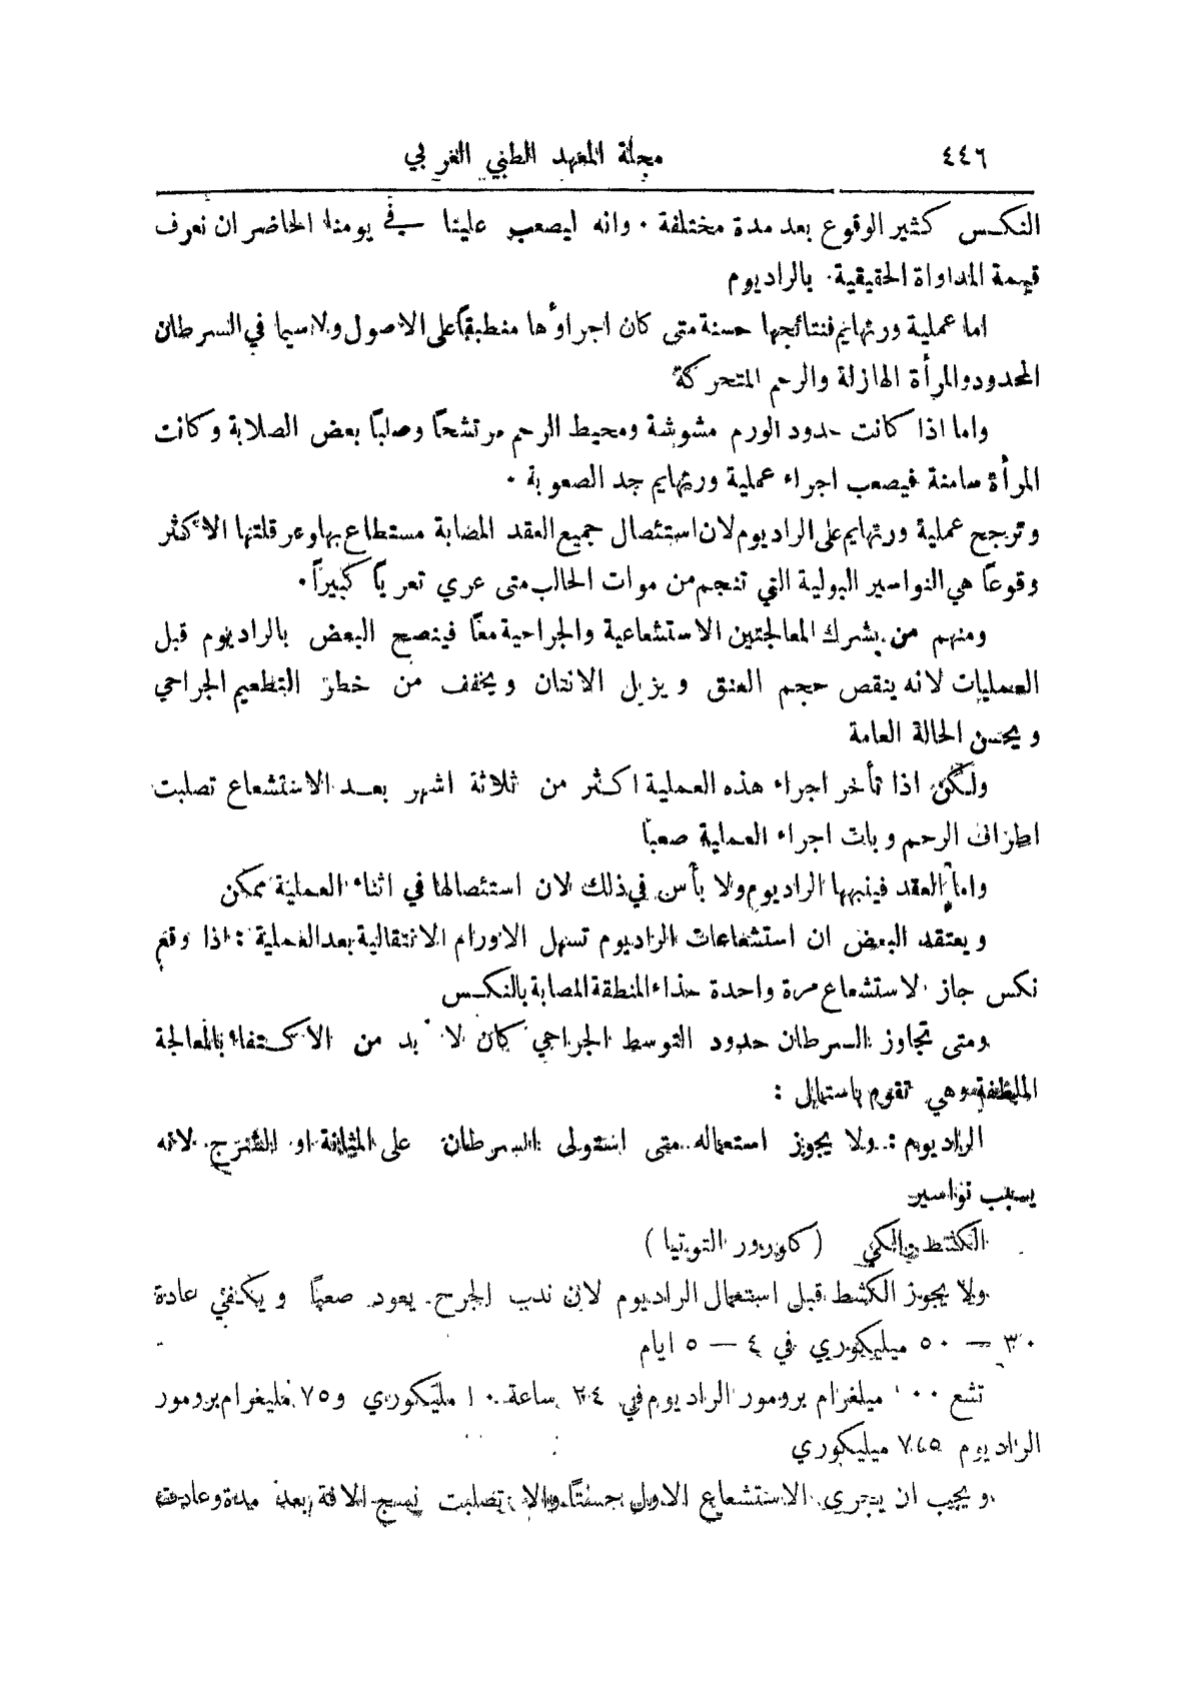 ٤٤٦ مجلة المعهد الطبي العربي
النكس كثير الوقوع بعد مدة مختلفة . وانه ليصعب علينا في يومنا الحاضر ان نعرف
قيمة المداواة الحقيقية . بالراديوم
اما عملية ورتهايم فنتائجها حسنة متى كان اجراؤها منطبقاً على الاصول ولاسيما في السرطان
المحدود والمرأة الهازلة والرحم المتحركة
واما اذا كانت حدود الورم مشوشة ومحيط الرحم مرتشحاً وصلباً بعض الصلابة وكانت
المرأة سامنة فيصعب اجراء عملية ورتهايم جد الصعوبة .
وترجح عملية ورتهايم على الراديوم لان استئصال جميع العقد المصابة مستطاع بها وعرقلتها الاكثر
وقوعاً هي النواسير البولية التي تنجم من موات الحالب متى عري تعرياً كبيراً .
ومنهم من يشرك المعالجتين الاستشعاعية والجراحية معاً فينصح البعض بالراديوم قبل
العمليات لانه ينقص حجم العنق ويزيل الانتان ويخفف من خطر التطعيم الجراحي
ويحسن الحالة العامة
ولكن اذا تأخر اجراء هذه العملية اكثر من ثلاثة اشهر بعد الاستشعاع تصلبت
اطراف الرحم وبات اجراء العملية صعباً
واما العقد فينبهها الراديوم ولا بأس في ذلك لان استئصالها في اثناء العملية ممكن
ويعتقد البعض ان استشعاعات الراديوم تسهل الاورام الانتقالية بعد العملية : اذا وقع
نكس جاز الاستشعاع مرة واحدة حذاء المنطقة المصابة بالنكس
ومتى تجاوز السرطان حدود التوسط الجراحي كان لا بد من الاكتفاء بالمعالجة
الملطفة وهي تقوم باستعمال :
الراديوم : ولا يجوز استعماله متى استولى السرطان على المثانة او الشرج لانه
يسبب نواسير
الكشط والكي (كلورور التوتيا)
ولا يجوز الكشط قبل استعمال الراديوم لان ندب الجرح يعود صعباً ويكفي عادة
٣٠ — ٥٠ ميليكوري في ٤ — ٥ ايام
تشع ١٠٠ ميلغرام برومور الراديوم في ٢٤ ساعة ١٠ مليكوري و٧٥ مليغرام برومور
الراديوم ٧،٤٥ ميليكوري
ويجب ان يجري الاستشعاع الاول حسناً والا تصلبت نسج الافة بعد مدة وعادت